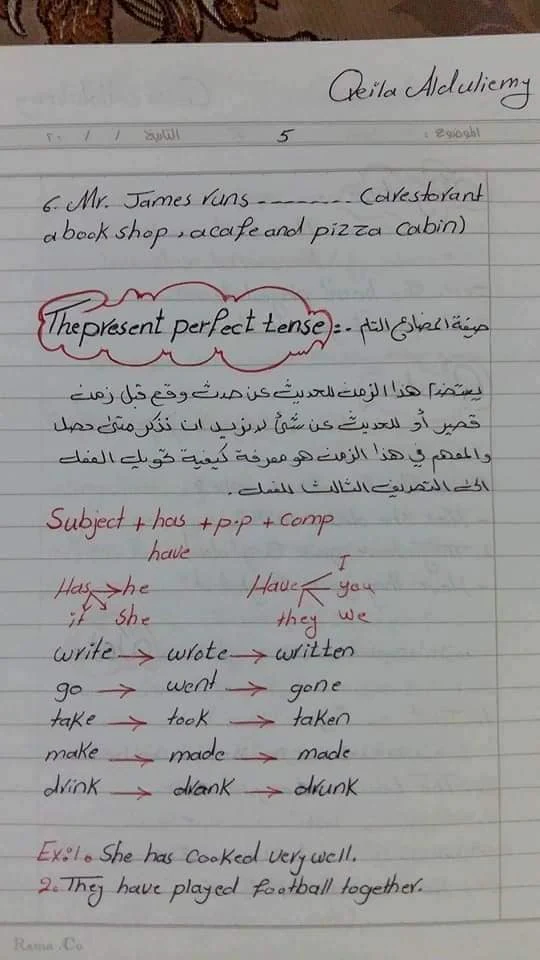 Qeila Alduliemy
الموضوع : 5 التاريخ / / ٢٠
6. Mr. James runs --------- (a restorant
a book shop, a cafe and pizza cabin)
The present perfect tense :- صيغة المضارع التام
يستخدم هذا الزمن للحديث عن حدث وقع قبل زمن
قصير أو للحديث عن شئ لا نريد ان نذكر متى حصل
والمهم في هذا الزمن هو معرفة كيفية تحويل الفعل
الى التصريف الثالث للفعل .
Subject + has + p.p + comp
have
Has → he Have I you
it she they we
write → wrote → written
go → went → gone
take → took → taken
make → made → made
drink → drank → drunk
Ex:1. She has cooked very well.
2. They have played football together.
Rama .Co